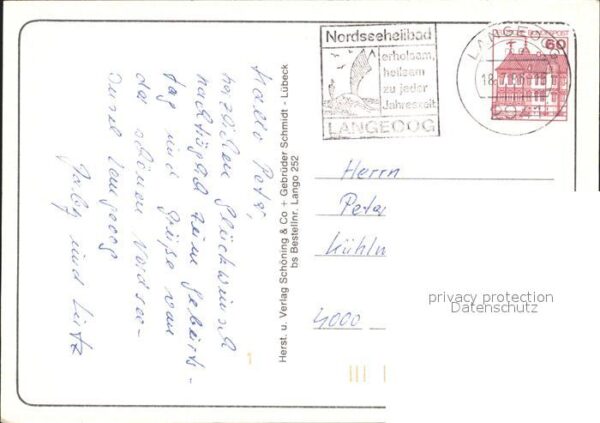 Hallo Peter,
herzlichen Glückwunsch
nachträglich zum Geburts-
tag und Grüße von
der schönen Nordsee-
insel Langeoog
und Lutz
Herst. u. Verlag Schöning & Co + Gebrüder Schmidt - Lübeck
bs Bestellnr. Lango 252
Nordseeheilbad
erholsam,
heilsam
zu jeder
Jahreszeit
LANGEOOG
LANGEOOG
60
Herrn
Peter
4000
privacy protection
Datenschutz